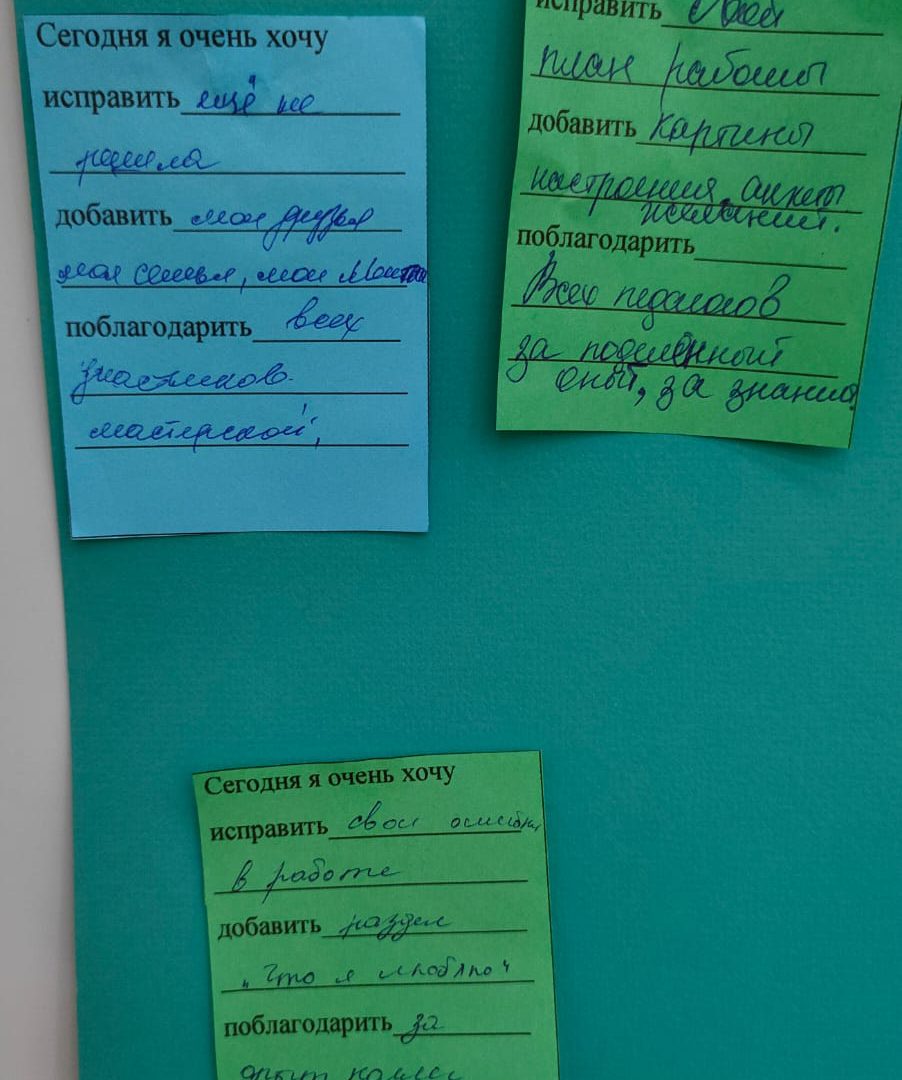 Сегодня я очень хочу
исправить ещё не
решила
добавить мои друзья
моя семья, мои мечты
поблагодарить всех
участников
мастерской,
исправить свой
план работы
добавить картины
настроения, анкеты
желаний.
поблагодарить
Всех педагогов
за поделённый
опыт, за знания
Сегодня я очень хочу
исправить свои ошибки
в работе
добавить раздел
"Что я люблю"
поблагодарить за
опыт